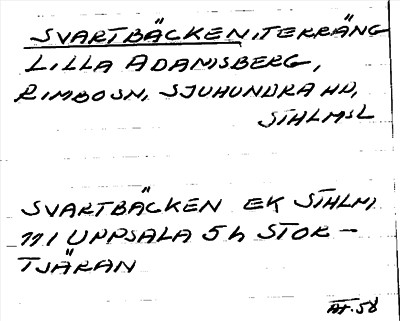 SVARTBÄCKEN, TERRÄNG
LILLA ADAMSBERG,
RIMBO SN, SJUHUNDRA HD,
STHLMS L
SVARTBÄCKEN EK STHLM
111 UPPSALA 5 h STOR-
TJÄRAN
AF. 58